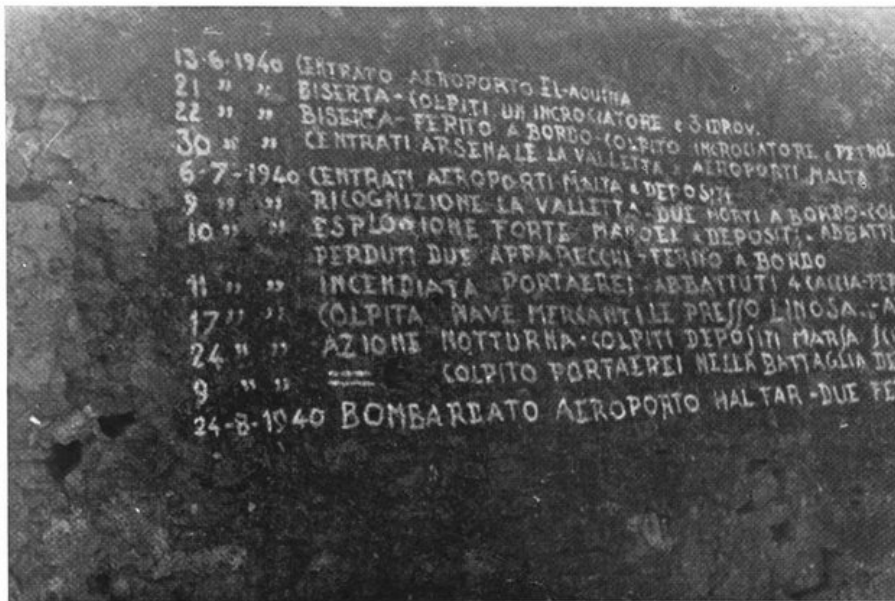 13-6-1940 CENTRATO AEROPORTO EL-AOUINA
21 " " BISERTA-COLPITI UN INCROCIATORE e 3 IDROV.
22 " " BISERTA-FERITO A BORDO-COLPITO INCROCIATORE e PETROL
30 " " CENTRATI ARSENALE LA VALLETTA e AEROPORTI MALTA
6-7-1940 CENTRATI AEROPORTI MALTA e DEPOSITI
9 " " RICOGNIZIONE LA VALLETTA-DUE MORTI A BORDO-CO
10 " " ESPLOSIONE FORTE MANOEL e DEPOSITI-ABBATTU
PERDUTI DUE APPARECCHI-FERITO A BORDO
11 " " INCENDIATA PORTAEREI-ABBATTUTI 4 CACCIA-PE
17 " " COLPITA NAVE MERCANTILE PRESSO LINOSA.-
24 " " AZIONE NOTTURNA-COLPITI DEPOSITI MARSA SC
9 " " = COLPITO PORTAEREI NELLA BATTAGLIA DI
24-8-1940 BOMBARDATO AEROPORTO HALFAR-DUE FE